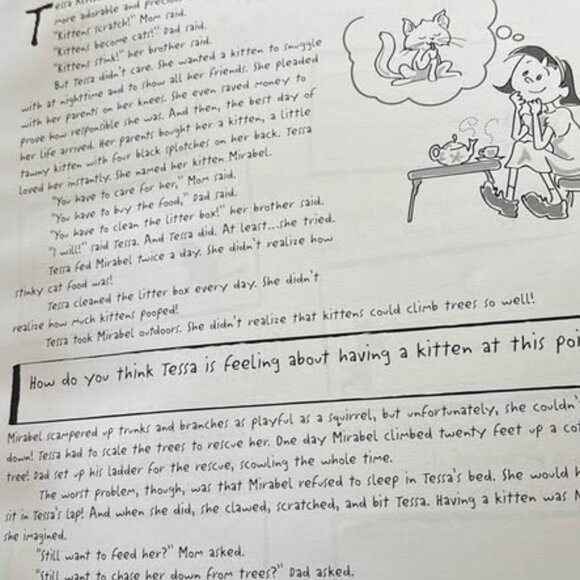 Tessa
more adorable and precious
"Kittens scratch!" Mom said.
"Kittens become cats!" Dad said.
"Kittens stink!" her brother said.
But Tessa didn't care. She wanted a kitten to snuggle
with at nighttime and to show all her friends. She pleaded
with her parents on her knees. She even saved money to
prove how responsible she was. And then, the best day of
her life arrived. Her parents bought her a kitten, a little
tawny kitten with four black splotches on her back. Tessa
loved her instantly. She named her kitten Mirabel.
"You have to care for her," Mom said.
"You have to buy the food," Dad said.
"You have to clean the litter box!" her brother said.
"I will!" said Tessa. And Tessa did. At least...she tried.
Tessa fed Mirabel twice a day. She didn't realize how
stinky cat food was!
Tessa cleaned the litter box every day. She didn't
realize how much kittens pooped!
Tessa took Mirabel outdoors. She didn't realize that kittens could climb trees so well!
How do you think Tessa is feeling about having a kitten at this poi
Mirabel scampered up trunks and branches as playful as a squirrel, but unfortunately, she couldn'
down! Tessa had to scale the trees to rescue her. One day Mirabel climbed twenty feet up a
tree! Dad set up his ladder for the rescue, scowling the whole time.
The worst problem, though, was that Mirabel refused to sleep in Tessa's bed. She would
sit in Tessa's lap! And when she did, she clawed, scratched, and bit Tessa. Having a kitten was
she imagined.
"Still want to feed her?" Mom asked.
"Still want to chase her down from trees?" Dad asked.